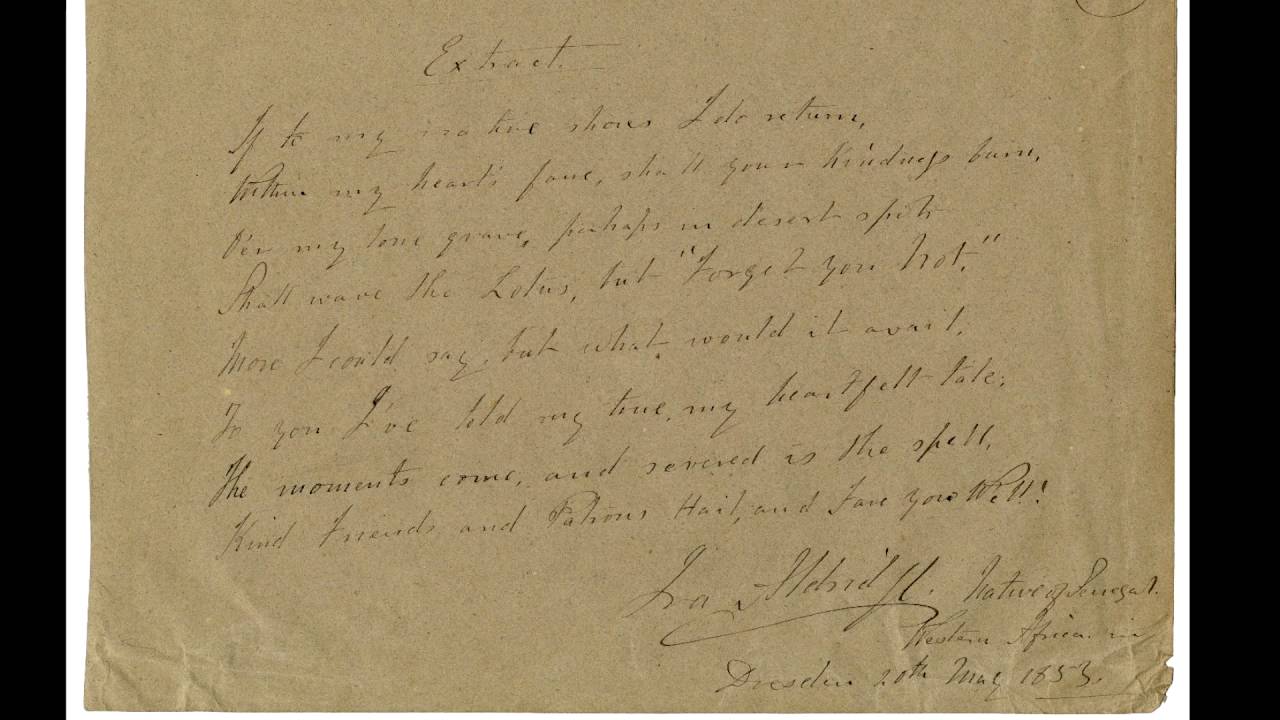 Extract.
If to my native shores I do return,
Within my heart's fane, shall your kindness burn,
O'er my lone grave, perhaps in desert spots
Shall wave the Lotus, but "Forget you Not."
More I could say, but what would it avail,
To you I've told my true, my heartfelt tale;
The moments come, and severed is the spell,
Kind Friends, and Patrons Hail, and Fare you Well!
Ira Aldridge. Native of Senegal.
Western Africa in
Dresden 20th May 1853.